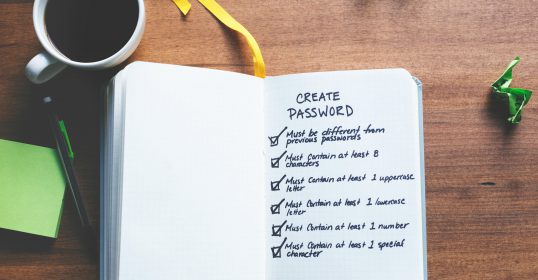 CREATE
PASSWORD
Must be different from
previous passwords
Must Contain at least 8
characters
Must Contain at least 1 uppercase
letter
Must Contain at least 1 lowercase
letter
Must Contain at least 1 number
Must Contain at least 1 special
character